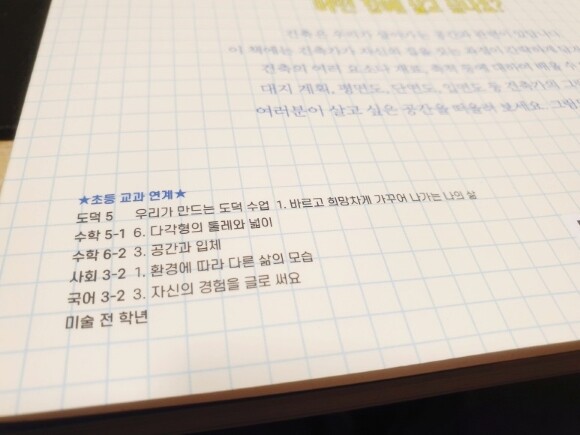 건축은 우리가 살아가는 공간과 관련이 있습니다.
이 책에는 건축가가 자신의 집을 짓는 과정이 간략하게 담겨
건축의 여러 요소나 재료, 축척 등에 대하여 배울 수
대지 계획, 평면도, 단면도, 입면도 등 건축가의 그
여러분이 살고 싶은 공간을 떠올려 보세요. 그럼
★초등 교과 연계★
도덕 5 우리가 만드는 도덕 수업 1. 바르고 희망차게 가꾸어 나가는 나의 삶
수학 5-1 6. 다각형의 둘레와 넓이
수학 6-2 3. 공간과 입체
사회 3-2 1. 환경에 따라 다른 삶의 모습
국어 3-2 3. 자신의 경험을 글로 써요
미술 전 학년